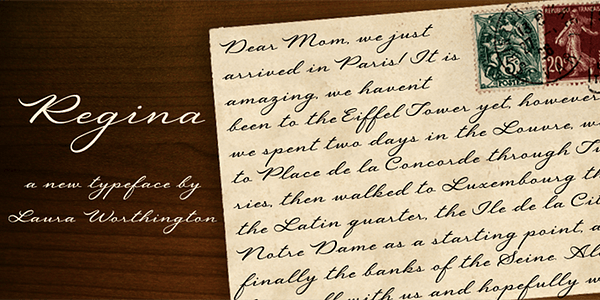 Regina
a new typeface by
Laura Worthington
Dear Mom, we just
arrived in Paris! It is
amazing, we haven't
been to the Eiffel Tower yet, however
we spent two days in the Louvre, w
to Place de la Concorde through Tu
ries, then walked to Luxembourg th
the Latin quarter, the Ile de la Cit
Notre Dame as a starting point, a
finally the banks of the Seine. Al
with us and hopefully w
5
20